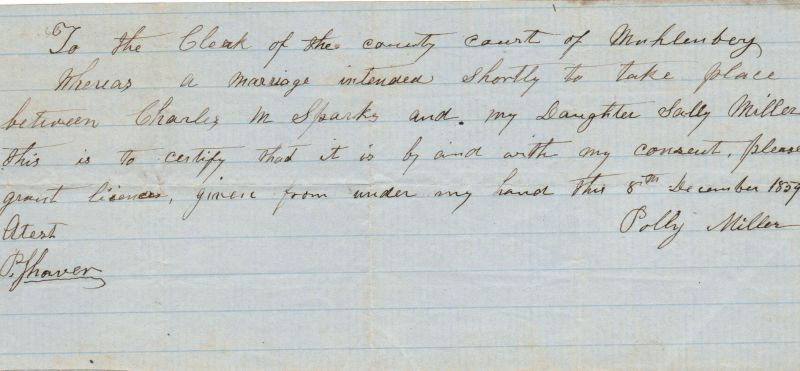 To the Clerk of the county court of Muhlenberg
Whereas a marriage intended shortly to take place
between Charles M Sparks and my Daughter Sally Miller
this is to certify that it is by and with my consent, please
grant licence, given from under my hand this 8th December 1859
Polly Miller
Atest
P. Shaver